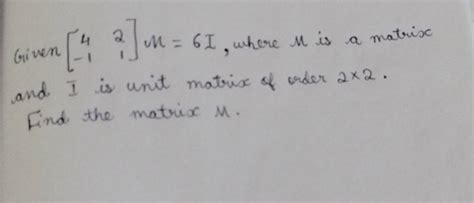 Given [4 2
-1 1] M = 6I, where M is a matrix
and I is unit matrix of order 2×2.
Find the matrix M.